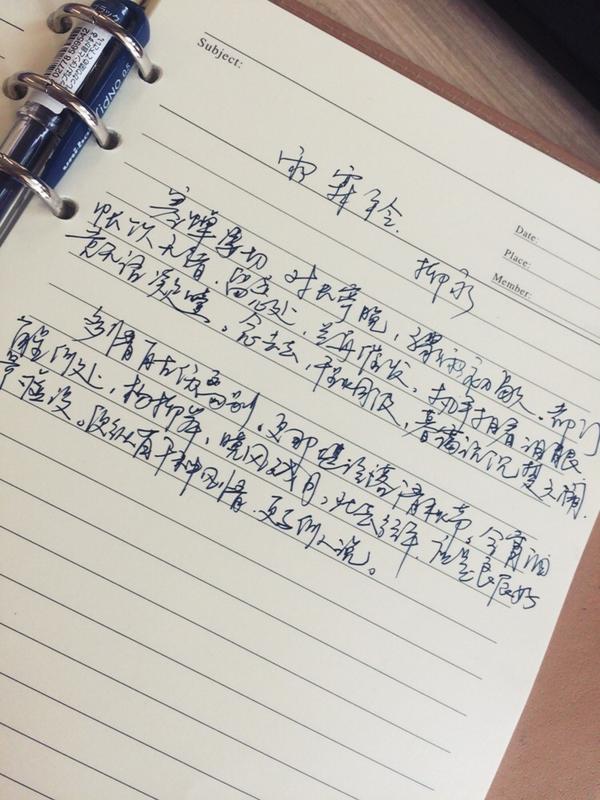 Subject:
雨霖铃.
Date:
Place:
Member:
柳永
寒蝉凄切 对长亭晚,骤雨初歇.都门
帐饮无绪.留恋处,兰舟催发.执手相看泪眼
竟无语凝噎.念去去,千里烟波,暮霭沉沉楚天阔.
多情自古伤离别.更那堪冷落清秋节,今宵酒
醒何处,杨柳岸,晓风残月,此去经年.应是良辰好
景虚设。便纵有千种风情.更与何人说。
uni
0.5